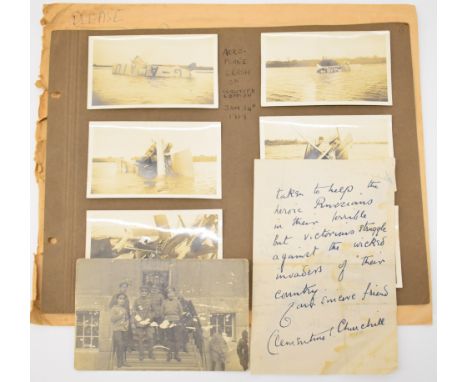 PLEASE
AERO-
PLANE
CRASH
ON
JAN 14th
taken to help the
heroic Russians
in their terrible
but victorious struggle
against the wicked
invaders of their
country.
Your sincere friend
Clementine S. Churchill